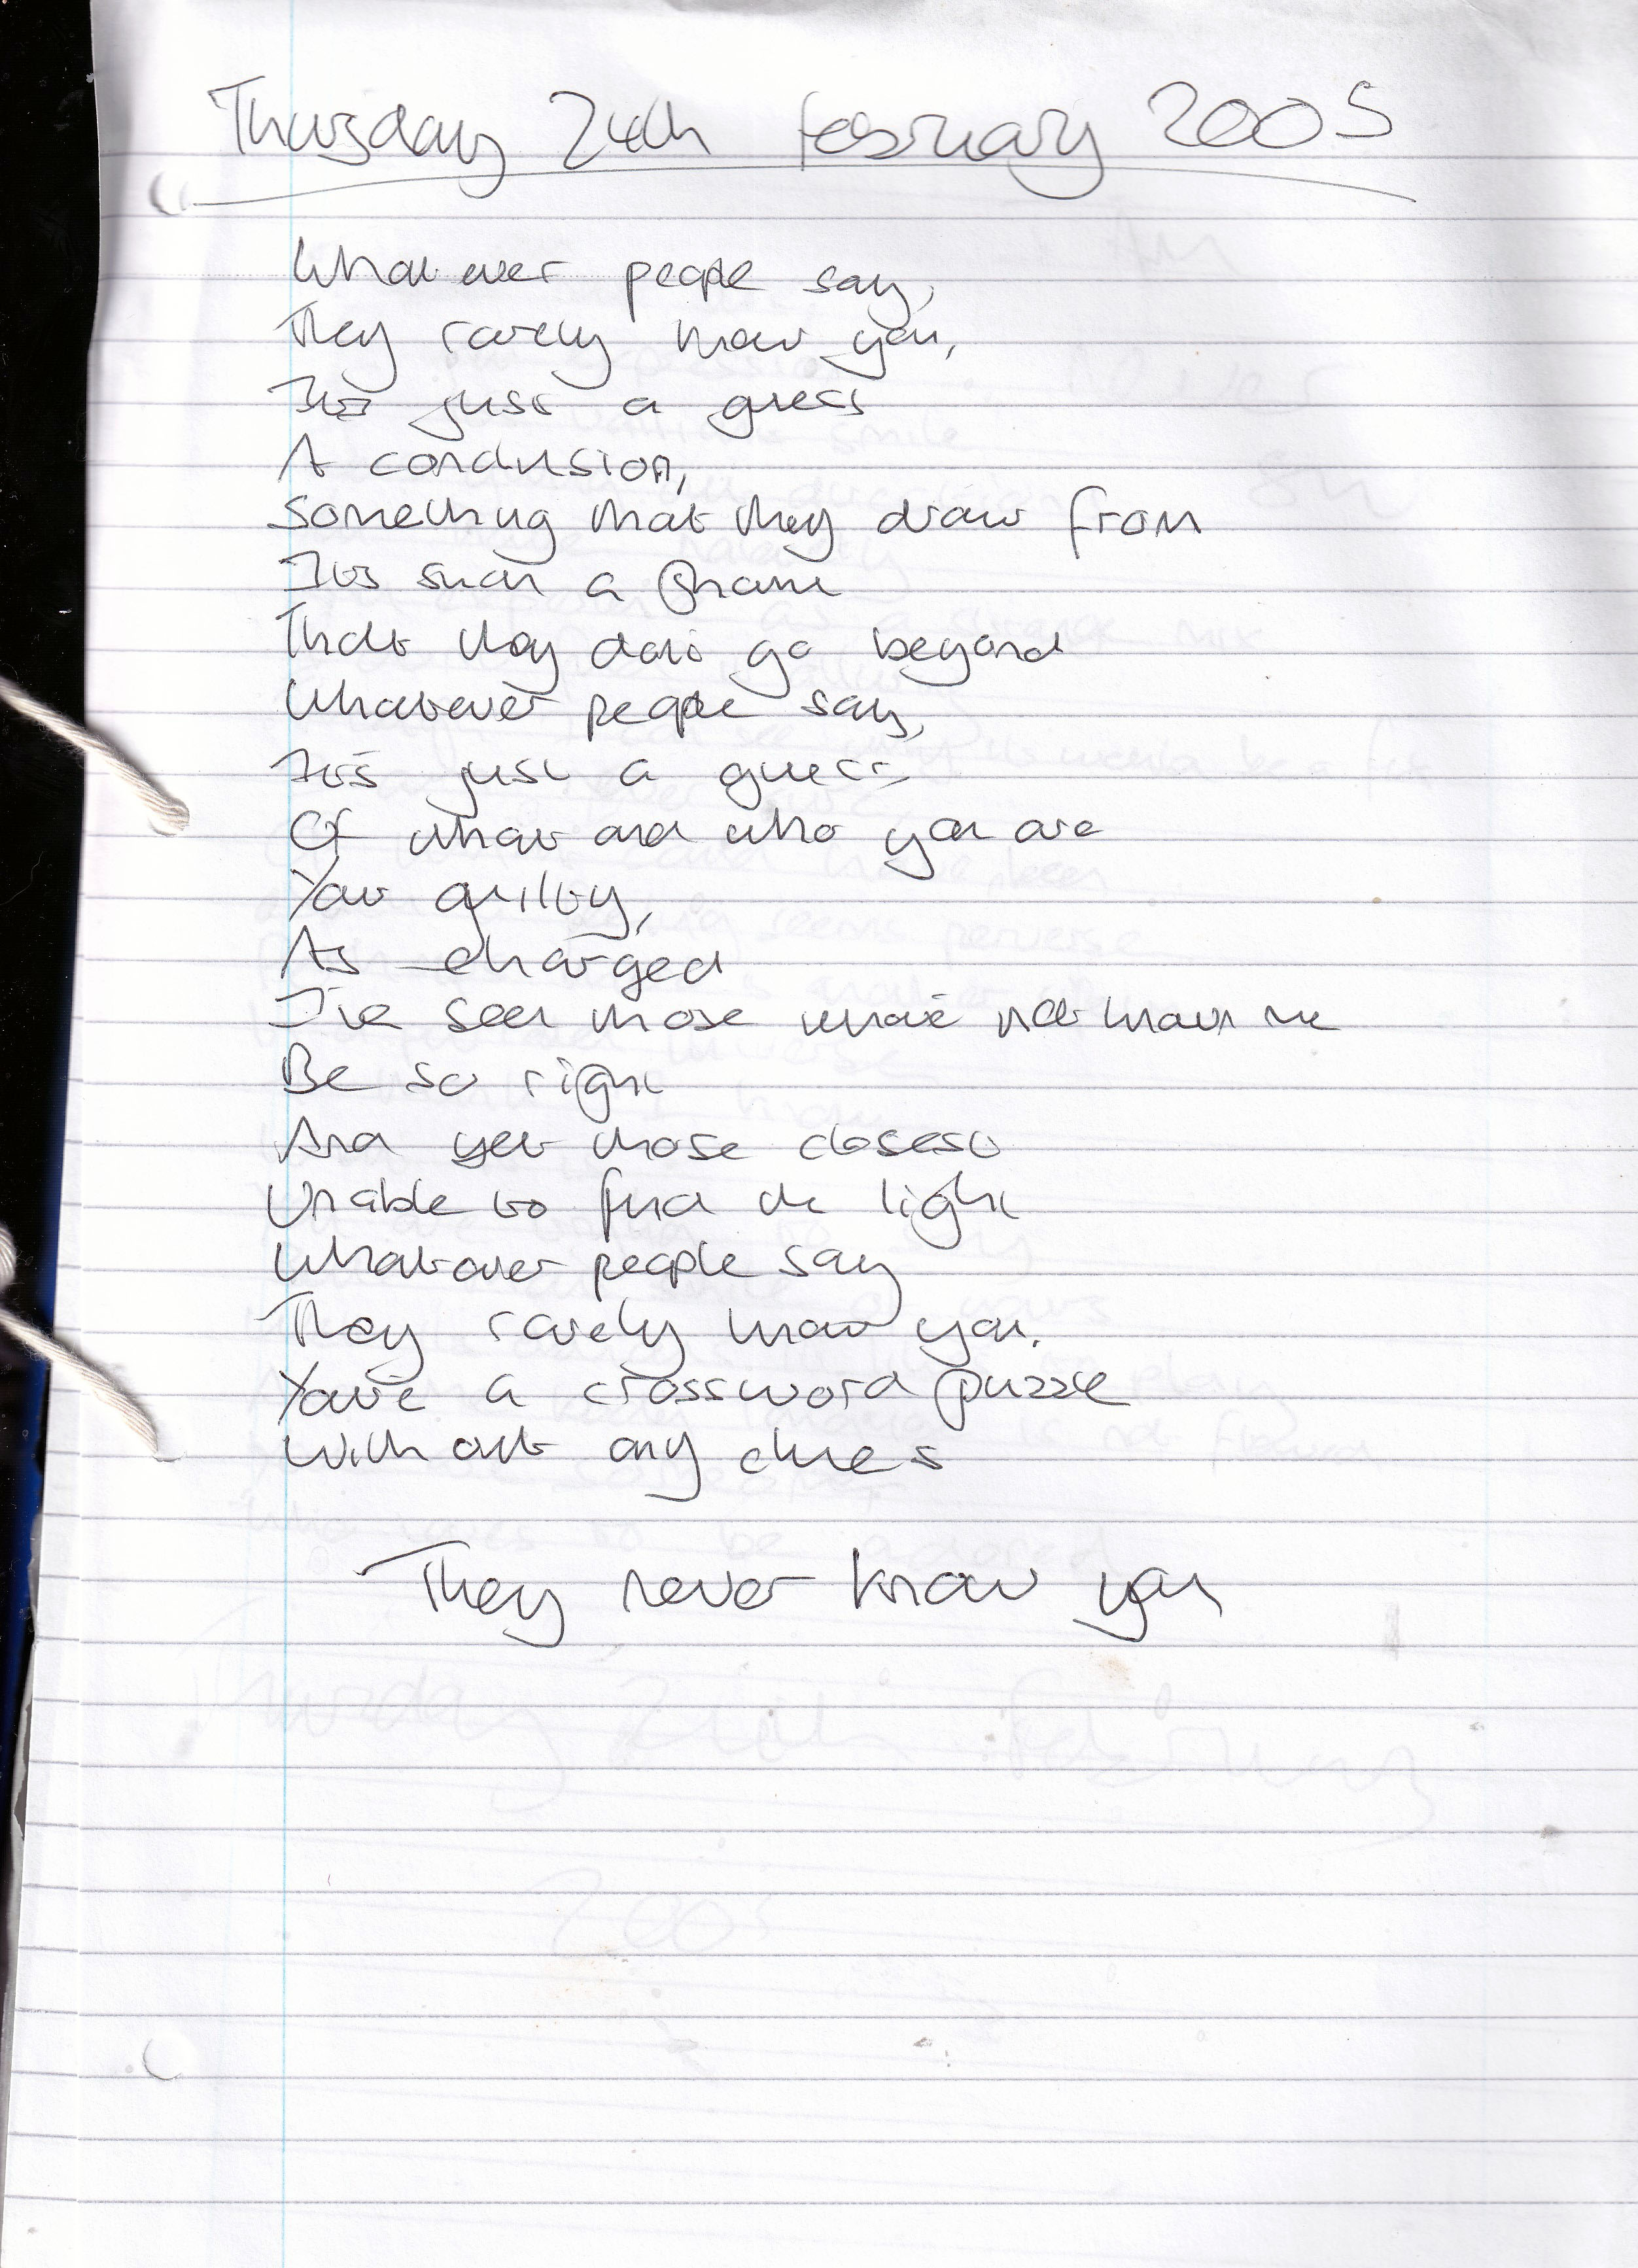 Thursday 24th February 2005
Whatever people say,
They rarely know you,
It's just a guess
A conclusion,
Something that they draw from
It's such a shame
That they don't go beyond
Whatever people say,
It's just a guess
Of what and who you are
Your guilty,
As charged
I've seen those who've not known me
Be so right
And yet those closest
Unable to find the light
Whatever people say
They rarely know you.
You're a crossword puzzle
Without any clues
They never know you